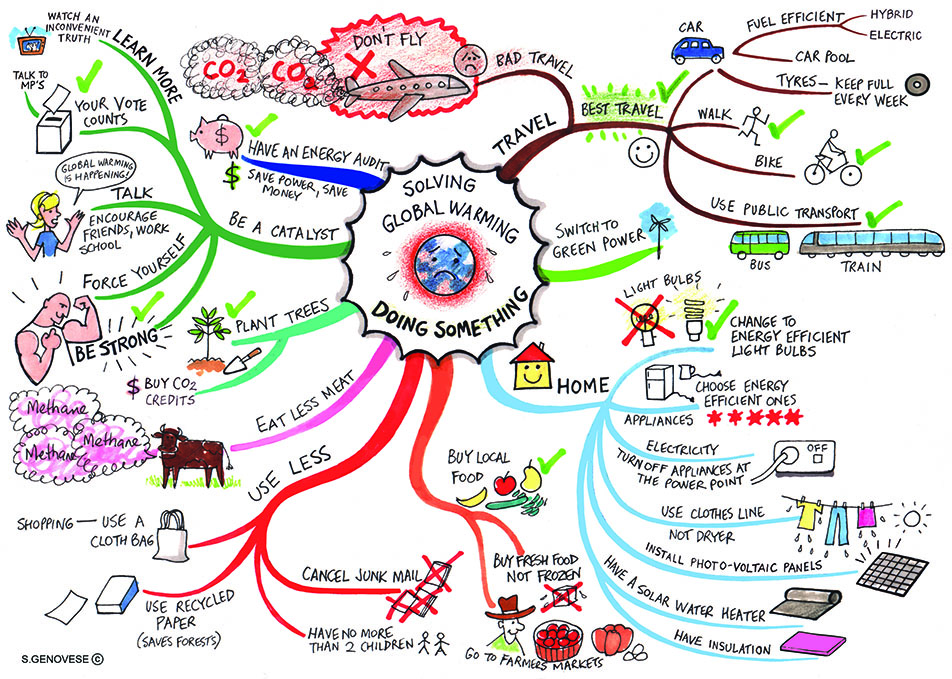 SOLVING
GLOBAL WARMING
DOING SOMETHING
TRAVEL
BAD TRAVEL
DON'T FLY
CO2
CO2
BEST TRAVEL
CAR
FUEL EFFICIENT
HYBRID
ELECTRIC
CAR POOL
TYRES — KEEP FULL
EVERY WEEK
WALK
BIKE
USE PUBLIC TRANSPORT
BUS
TRAIN
SWITCH TO
GREEN POWER
HOME
LIGHT BULBS
CHANGE TO
ENERGY EFFICIENT
LIGHT BULBS
APPLIANCES
CHOOSE ENERGY
EFFICIENT ONES
ELECTRICITY
TURN OFF APPLIANCES AT
THE POWER POINT
OFF
USE CLOTHES LINE
NOT DRYER
INSTALL PHOTO-VOLTAIC PANELS
HAVE A SOLAR WATER HEATER
HAVE INSULATION
BUY LOCAL
FOOD
BUY FRESH FOOD
NOT FROZEN
GO TO FARMERS MARKETS
USE LESS
CANCEL JUNK MAIL
HAVE NO MORE
THAN 2 CHILDREN
SHOPPING — USE A
CLOTH BAG
USE RECYCLED
PAPER
(SAVES FORESTS)
EAT LESS MEAT
Methane
Methane
Methane
PLANT TREES
$ BUY CO2
CREDITS
BE A CATALYST
LEARN MORE
WATCH AN
INCONVENIENT
TRUTH
TALK TO
MP'S
YOUR VOTE
COUNTS
GLOBAL WARMING
IS HAPPENING!
TALK
ENCOURAGE
FRIENDS, WORK
SCHOOL
FORCE YOURSELF
BE STRONG
HAVE AN ENERGY AUDIT
$
$ SAVE POWER, SAVE
MONEY
S.GENOVESE ©